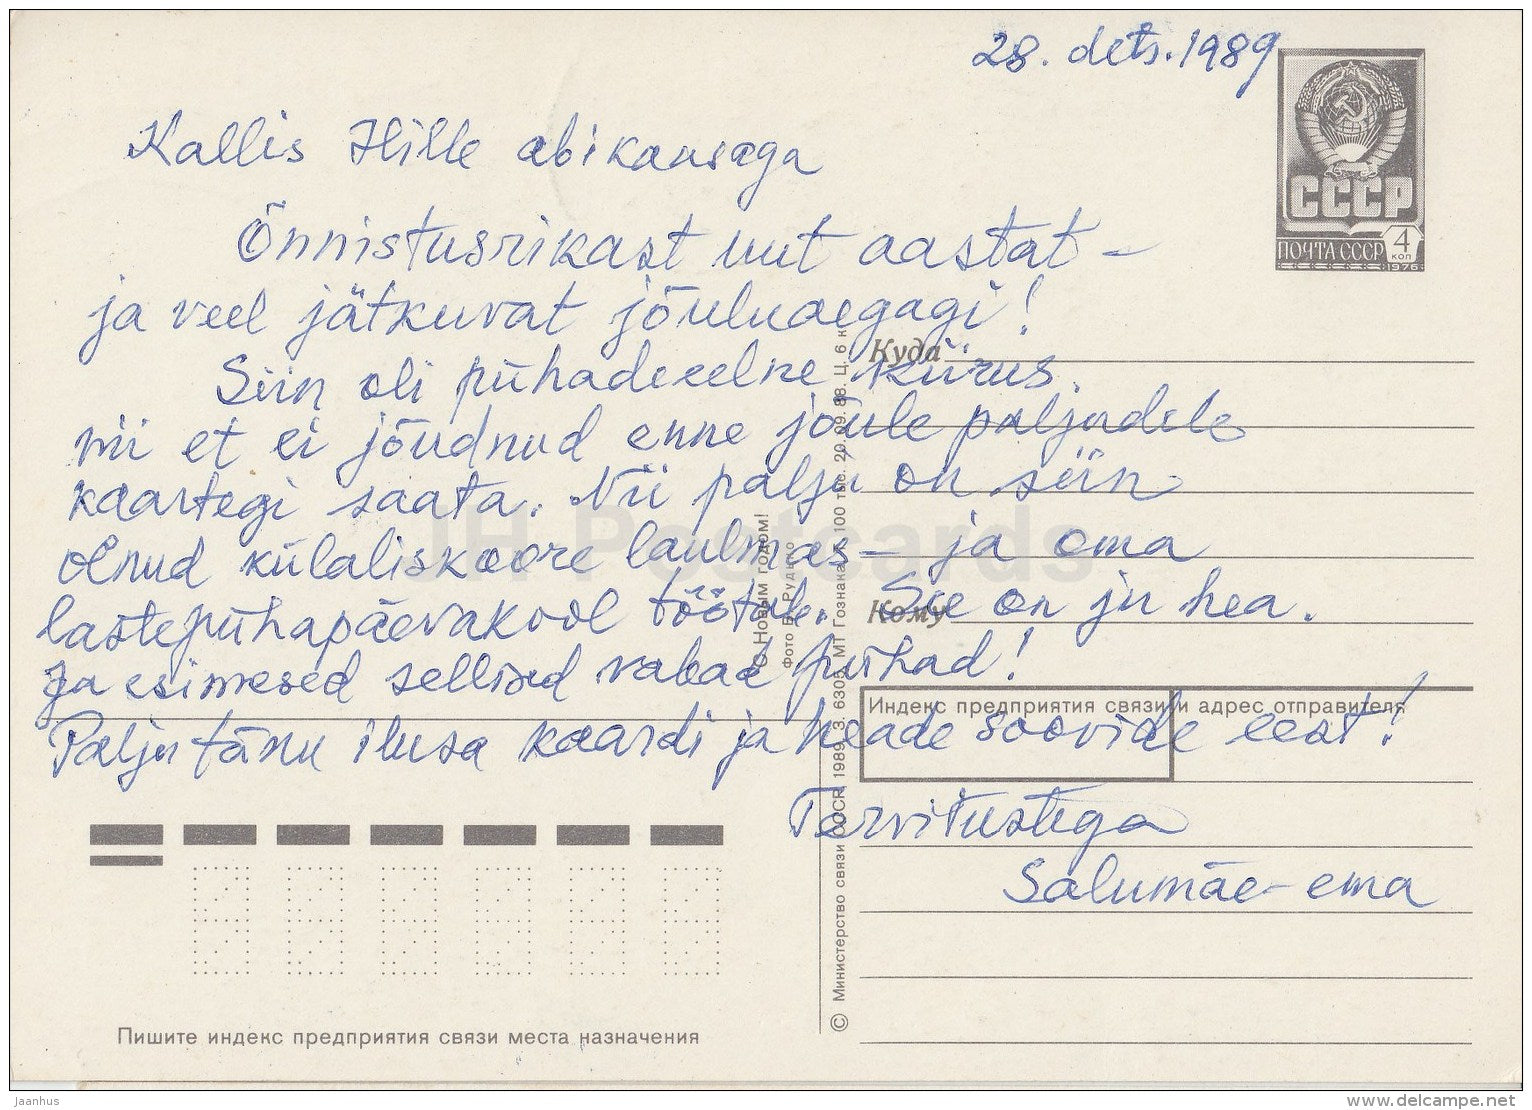 28. dets. 1989
Kallis Hille abikaasaga
Õnnistusrikast uut aastat –
ja veel jätkuvat jõuluaegagi!
Siin oli pühadeeelne kiirus.
nii et ei jõudnud enne jõule paljudele
kaartegi saata. Nii palju on siin
olnud külaliskoore laulmas – ja oma
lastepühapäevakool töötab. See on ju hea.
Ja esimesed sellised vabad pühad!
Palju tänu ilusa kaardi ja heade soovide eest!
Tervitustega
Salumäe-ema
СССР
ПОЧТА СССР 4 коп
1976
Куда
Кому
Индекс предприятия связи и адрес отправителя
Пишите индекс предприятия связи места назначения
С Новым годом!
© Министерство связи СССР. 1989. З. 6305. МТ Гознака. 100 тыс. 20.09.88. Ц. 6 к.
JH Postcards
Jaanhus
delcampe.net